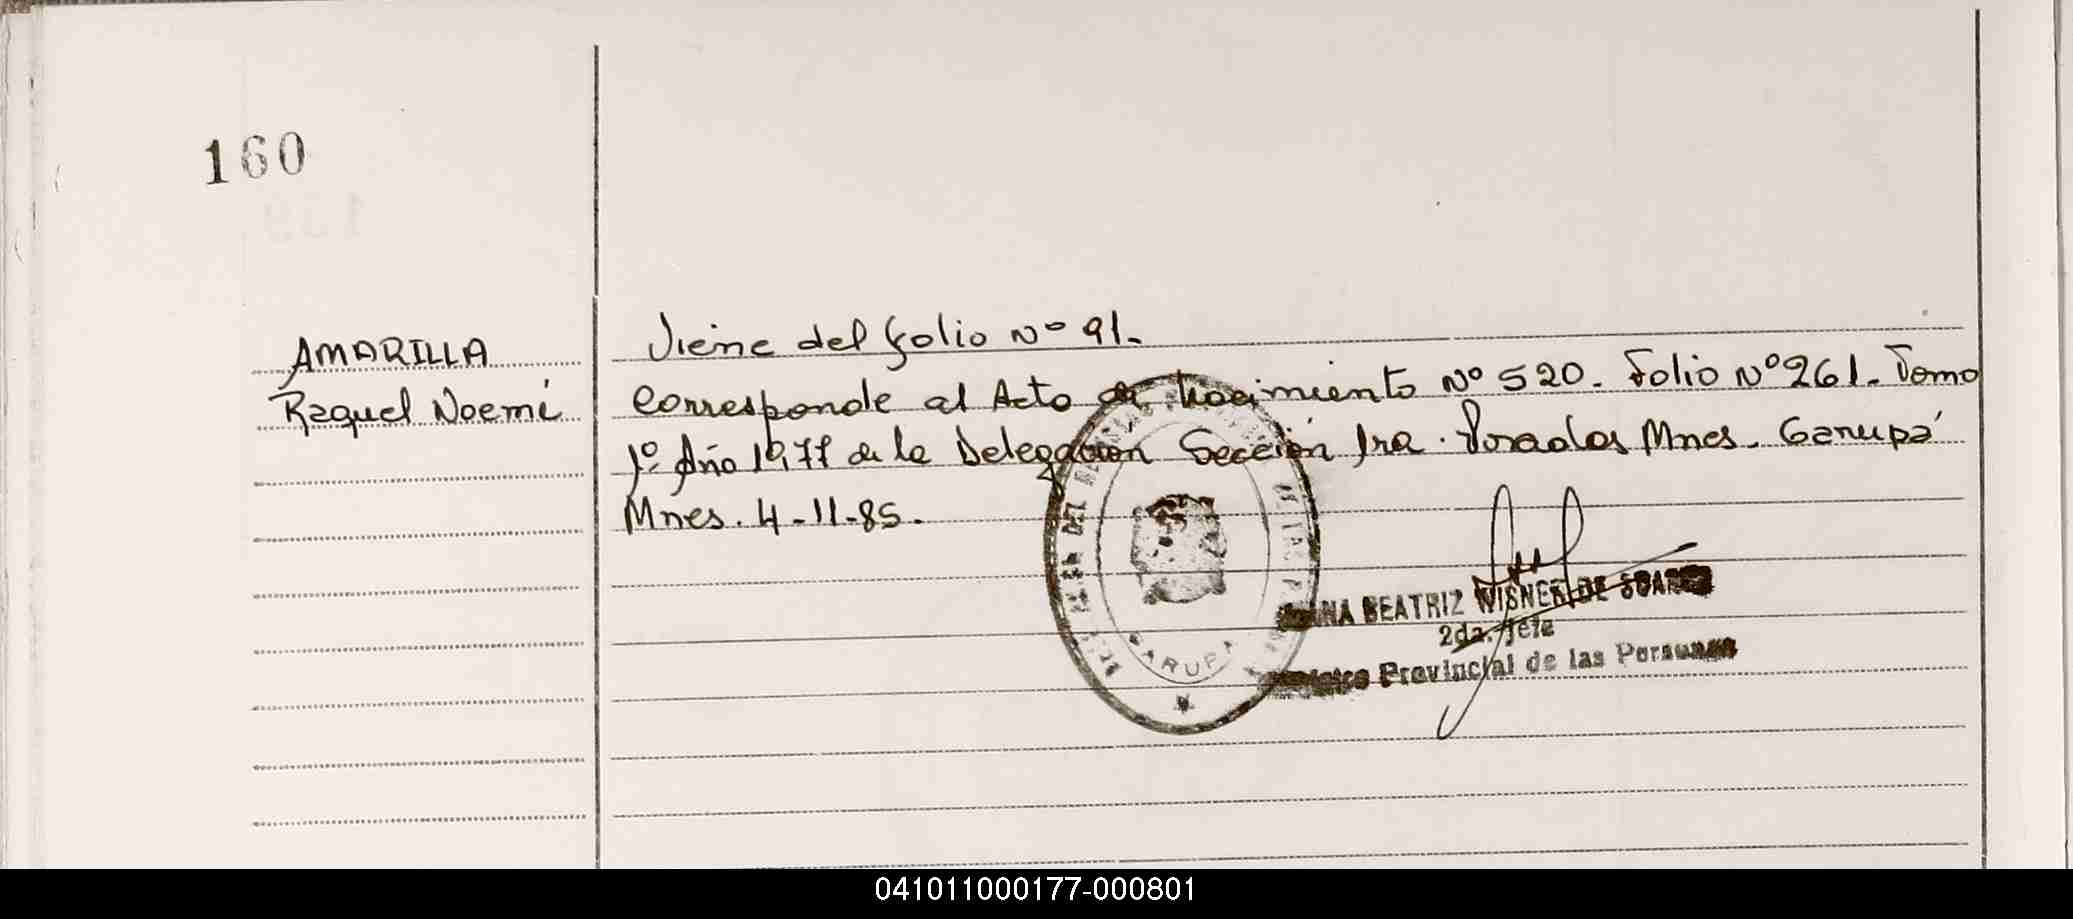 160
AMARILLA
Raquel Noemi
Viene del folio Nº 91.
Corresponde al Acta de Nacimiento Nº 520. Folio Nº 261. Tomo
1º. Año 1977 de la Delegación Sección 1ra. Posadas Mnes. Garupá
Mnes. 4-11-85.
BEATRIZ WISNER DE SUAREZ
2da. Jefe
Provincial de las Personas
GARUPA
041011000177-000801